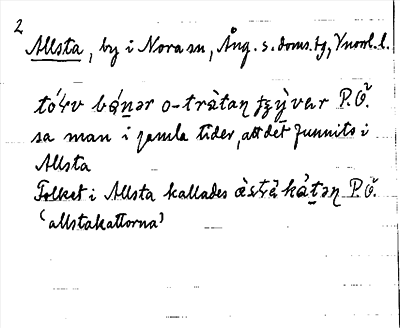 2
Allsta, by i Nora sn, Ång. s. doms. tg, Ynorrl. l.
tólv bǿnər o-tràtan tjyvar P.Ö.
sa man i gamla tider, att det funnits i
Allsta
Folket i Allsta kallades kàtən P.Ö.
(allstakattorna)